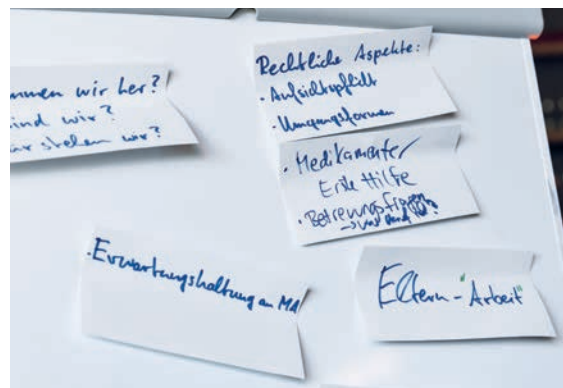 mmen wir her?
ind wir?
stehen wir?
Rechtliche Aspekte:
· Aufsichtspflicht
· Umgangsformen
· Medikamente/
Erste Hilfe
· Betreuungsfragen
· Erwartungshaltung an MA
Eltern-"Arbeit"